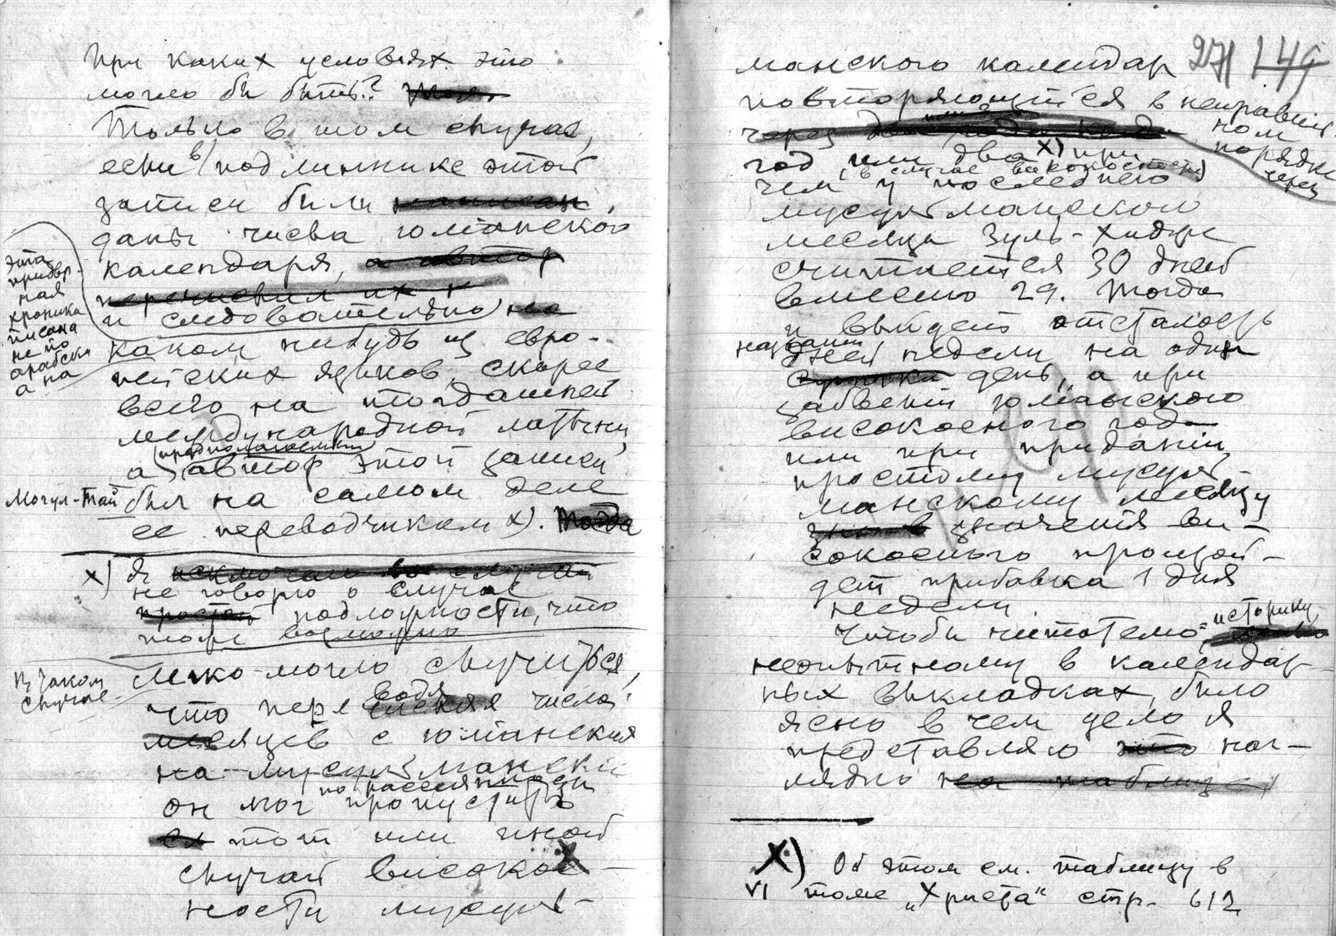 При каких условиях это
могло бы быть?
Только в том случае,
если в подлиннике этой
записи были
даны числа юлианского
календаря,
и следовательно на
каком нибудь из евро-
пейских языков, скорее
всего на тогдашней
международной латыни,
а (предполагаемый) автор этой записи
Могул-Тай был на самом деле
ее переводчиком x). Тогда
Эта
придвор-
ная
хроника
писана
не по
арабски
а на
x) Я
не говорю о случае
простой подложности, что
тоже возможно
В таком
случае
легко могло случиться,
что переводя числа
месяцев с юлианския
на мусульмански
он мог по рассеянности пропустить
тот или иной
случай високос-
ности мусуль-
манского календар
271
повторяющиеся в неправиль-
ном
порядке
через
год или два x) при
чем (в случае високосности)
у последнего
мусульманского
месяца Зуль-Хидже
считается 30 дней
вместо 29. Тогда
и выйдет отсталость
названий
дней недели на один
день, а при
забвении юлианского
високосного года
или при придании
простому мусуль
манскому месяцу
значения ви-
сокосного произой-
дет прибавка 1 дня
недели.
Чтобы читателю-историку,
неопытному в календар-
ных выкладках, было
ясно в чем дело я
представляю это наг-
лядно на таблице
X) Об этом см. таблицу в
VI томе „Христа" стр. 612